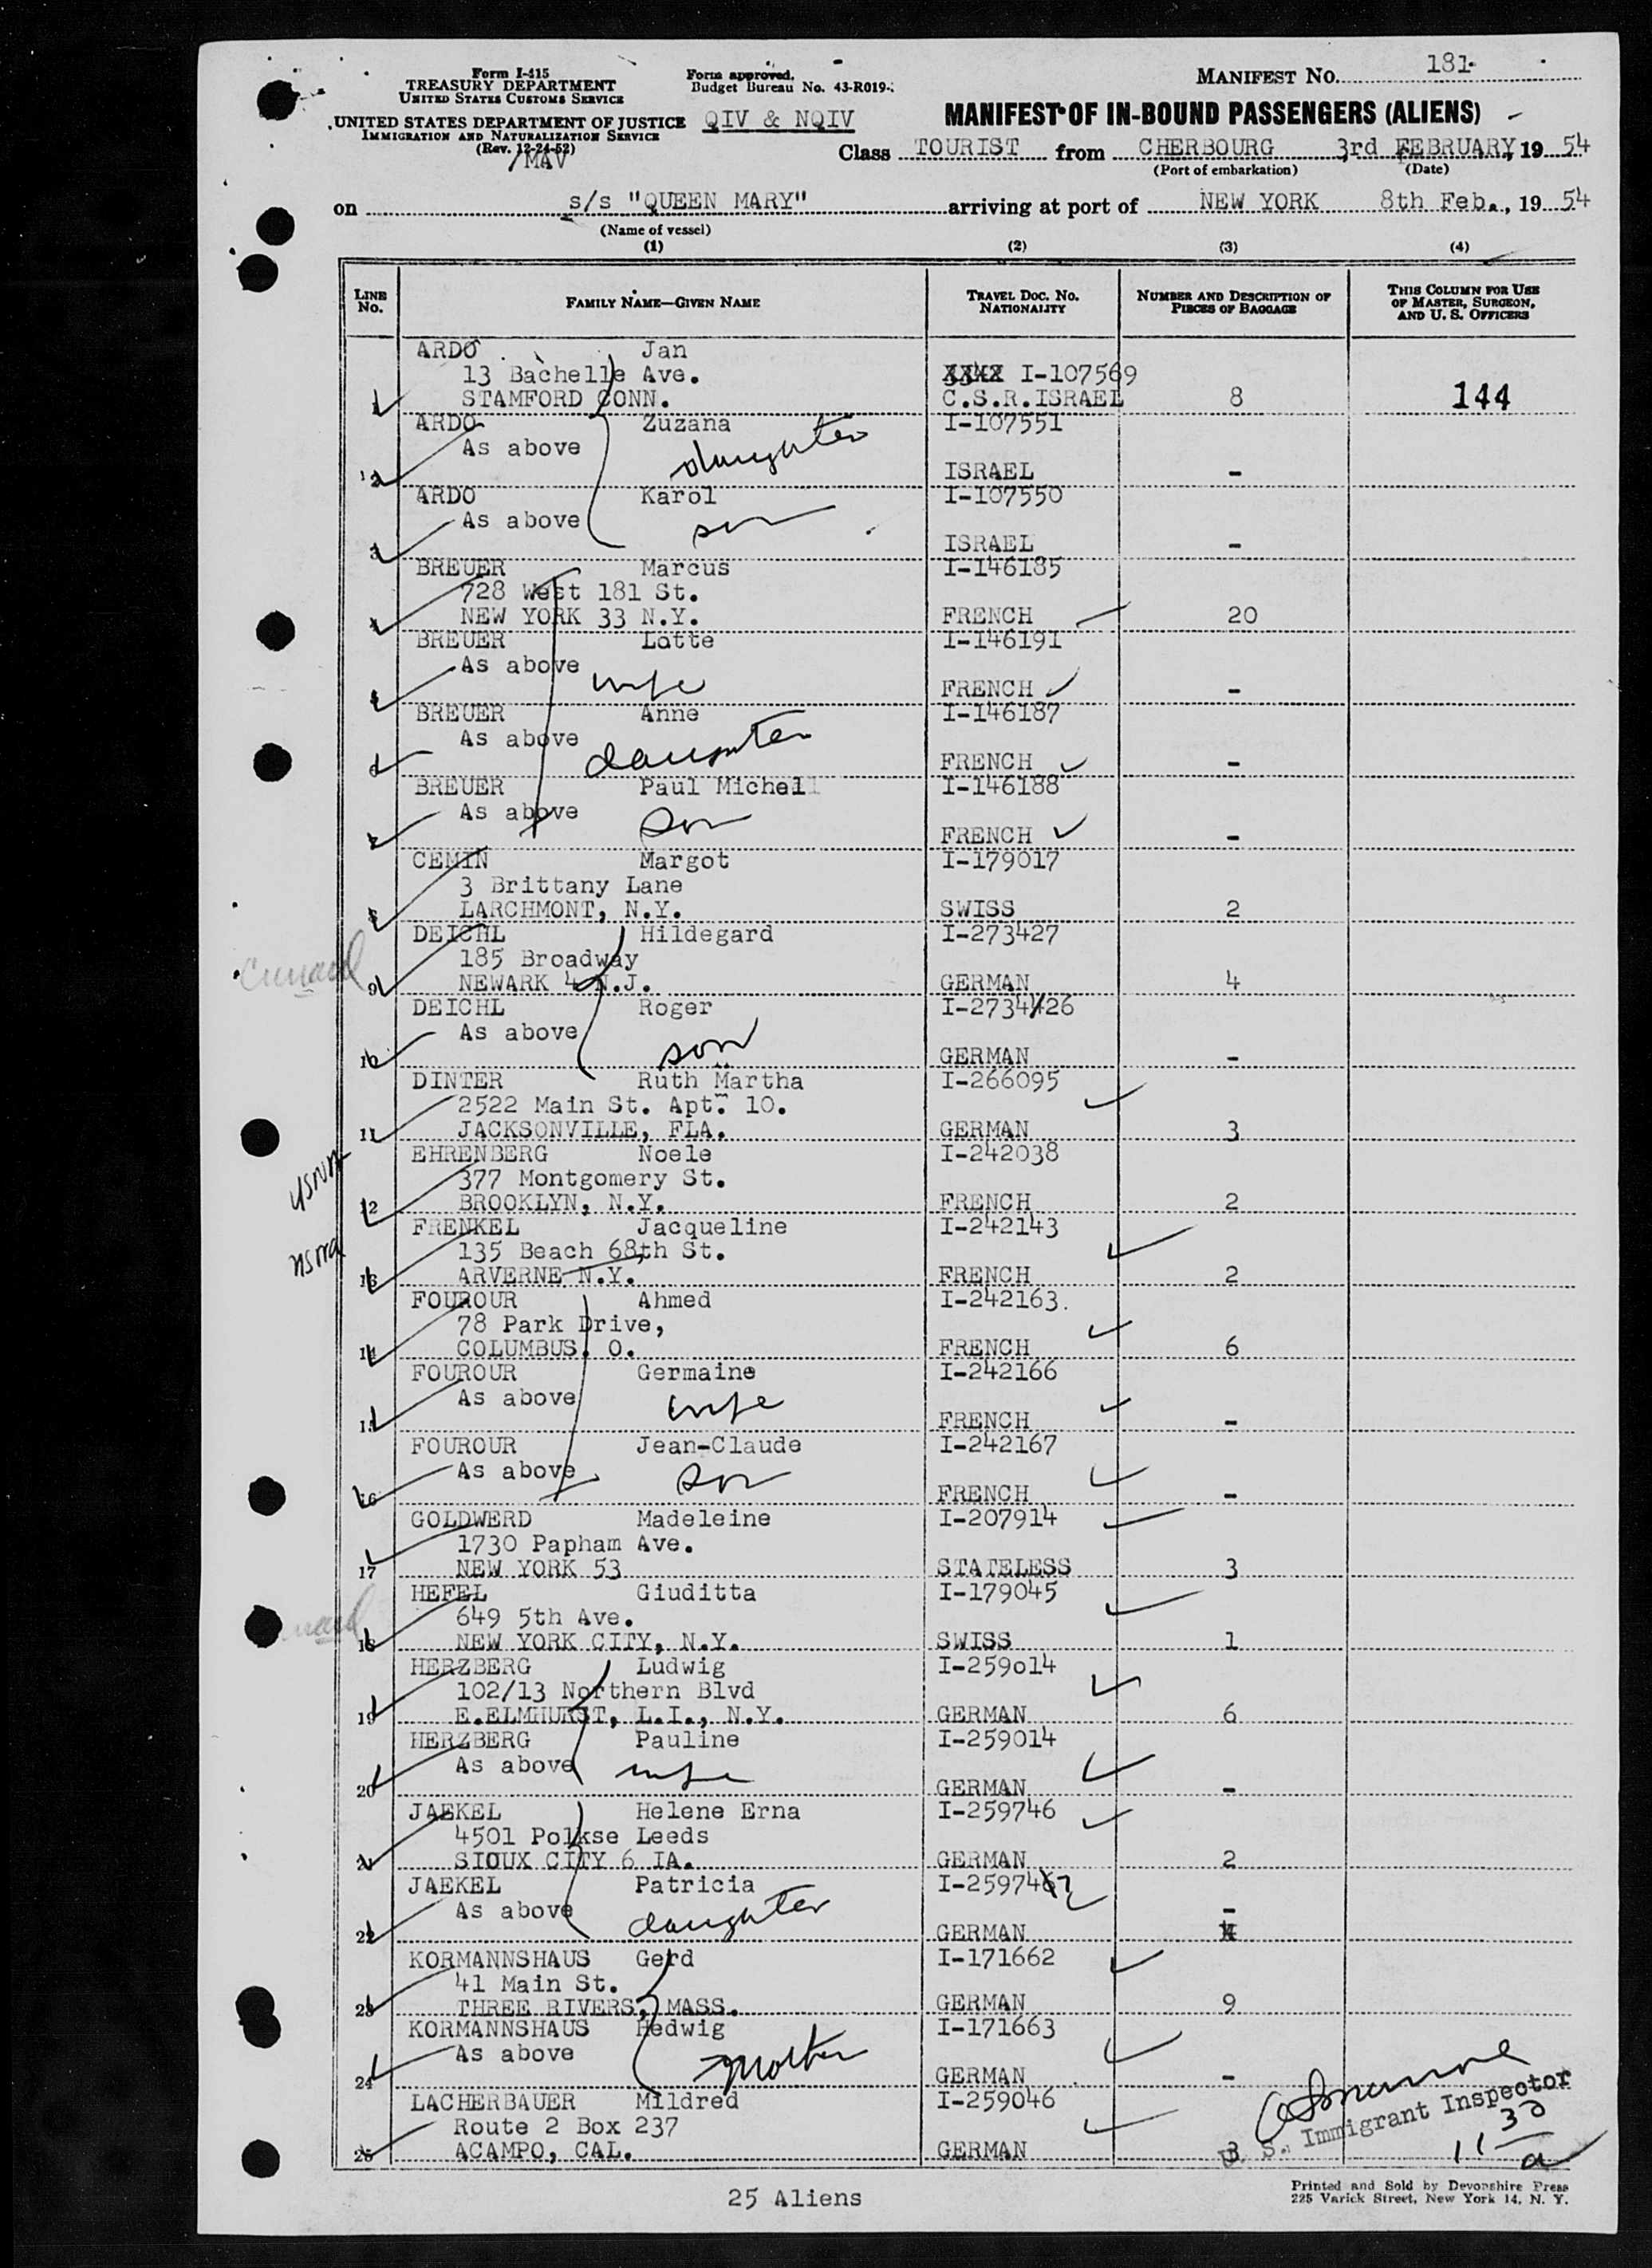 Form I-415
TREASURY DEPARTMENT
UNITED STATES CUSTOMS SERVICE
UNITED STATES DEPARTMENT OF JUSTICE
IMMIGRATION AND NATURALIZATION SERVICE
(Rev. 12-24-52)
/MAV
Form approved.
Budget Bureau No. 43-R019-
QIV & NQIV
MANIFEST NO. 181
MANIFEST OF IN-BOUND PASSENGERS (ALIENS)
Class TOURIST from CHERBOURG 3rd FEBRUARY, 19 54
(Port of embarkation) (Date)
on s/s "QUEEN MARY" arriving at port of NEW YORK 8th Feb., 19 54
(Name of vessel)
(1) (2) (3) (4)
LINE No. FAMILY NAME—GIVEN NAME TRAVEL DOC. NO. NATIONALITY NUMBER AND DESCRIPTION OF PIECES OF BAGGAGE THIS COLUMN FOR USE OF MASTER, SURGEON, AND U. S. OFFICERS
ARDO Jan
13 Bachelle Ave. I-107569
1 STAMFORD CONN. C.S.R.ISRAEL 8 144
ARDO Zuzana I-107551
As above daughter
2 ISRAEL -
ARDO Karol I-107550
As above son
3 ISRAEL -
BREUER Marcus I-146185
728 West 181 St.
4 NEW YORK 33 N.Y. FRENCH 20
BREUER Lotte I-146191
As above wife
5 FRENCH -
BREUER Anne I-146187
As above daughter
6 FRENCH -
BREUER Paul Michel I-146188
As above son
7 FRENCH -
CEMIN Margot I-179017
3 Brittany Lane
8 LARCHMONT, N.Y. SWISS 2
DEICHL Hildegard I-273427
185 Broadway
Cunard 9 NEWARK 4 N.J. GERMAN 4
DEICHL Roger I-2734426
As above son
10 GERMAN -
DINTER Ruth Martha I-266095
2522 Main St. Apt. 10.
11 JACKSONVILLE, FLA. GERMAN 3
EHRENBERG Noele I-242038
377 Montgomery St.
12 BROOKLYN, N.Y. FRENCH 2
FRENKEL Jacqueline I-242143
135 Beach 68th St.
13 ARVERNE N.Y. FRENCH 2
FOUROUR Ahmed I-242163.
78 Park Drive,
14 COLUMBUS, O. FRENCH 6
FOUROUR Germaine I-242166
As above wife
15 FRENCH -
FOUROUR Jean-Claude I-242167
As above son
16 FRENCH -
GOLDWERD Madeleine I-207914
1730 Papham Ave.
17 NEW YORK 53 STATELESS 3
HEFEL Giuditta I-179045
649 5th Ave.
18 NEW YORK CITY, N.Y. SWISS 1
HERZBERG Ludwig I-259o14
102/13 Northern Blvd
19 E.ELMHURST, L.I., N.Y. GERMAN 6
HERZBERG Pauline I-259014
As above wife
20 GERMAN -
JAEKEL Helene Erna I-259746
4501 Polkse Leeds
21 SIOUX CITY 6 IA. GERMAN 2
JAEKEL Patricia I-259747
As above daughter -
22 GERMAN
KORMANNSHAUS Gerd I-171662
41 Main St.
23 THREE RIVERS, MASS. GERMAN 9
KORMANNSHAUS Hedwig I-171663
As above mother
24 GERMAN -
LACHERBAUER Mildred I-259046
Route 2 Box 237
25 ACAMPO, CAL. GERMAN 3
U. S. Immigrant Inspector
11 30 a
25 Aliens
Printed and Sold by Devonshire Press
225 Varick Street, New York 14, N. Y.